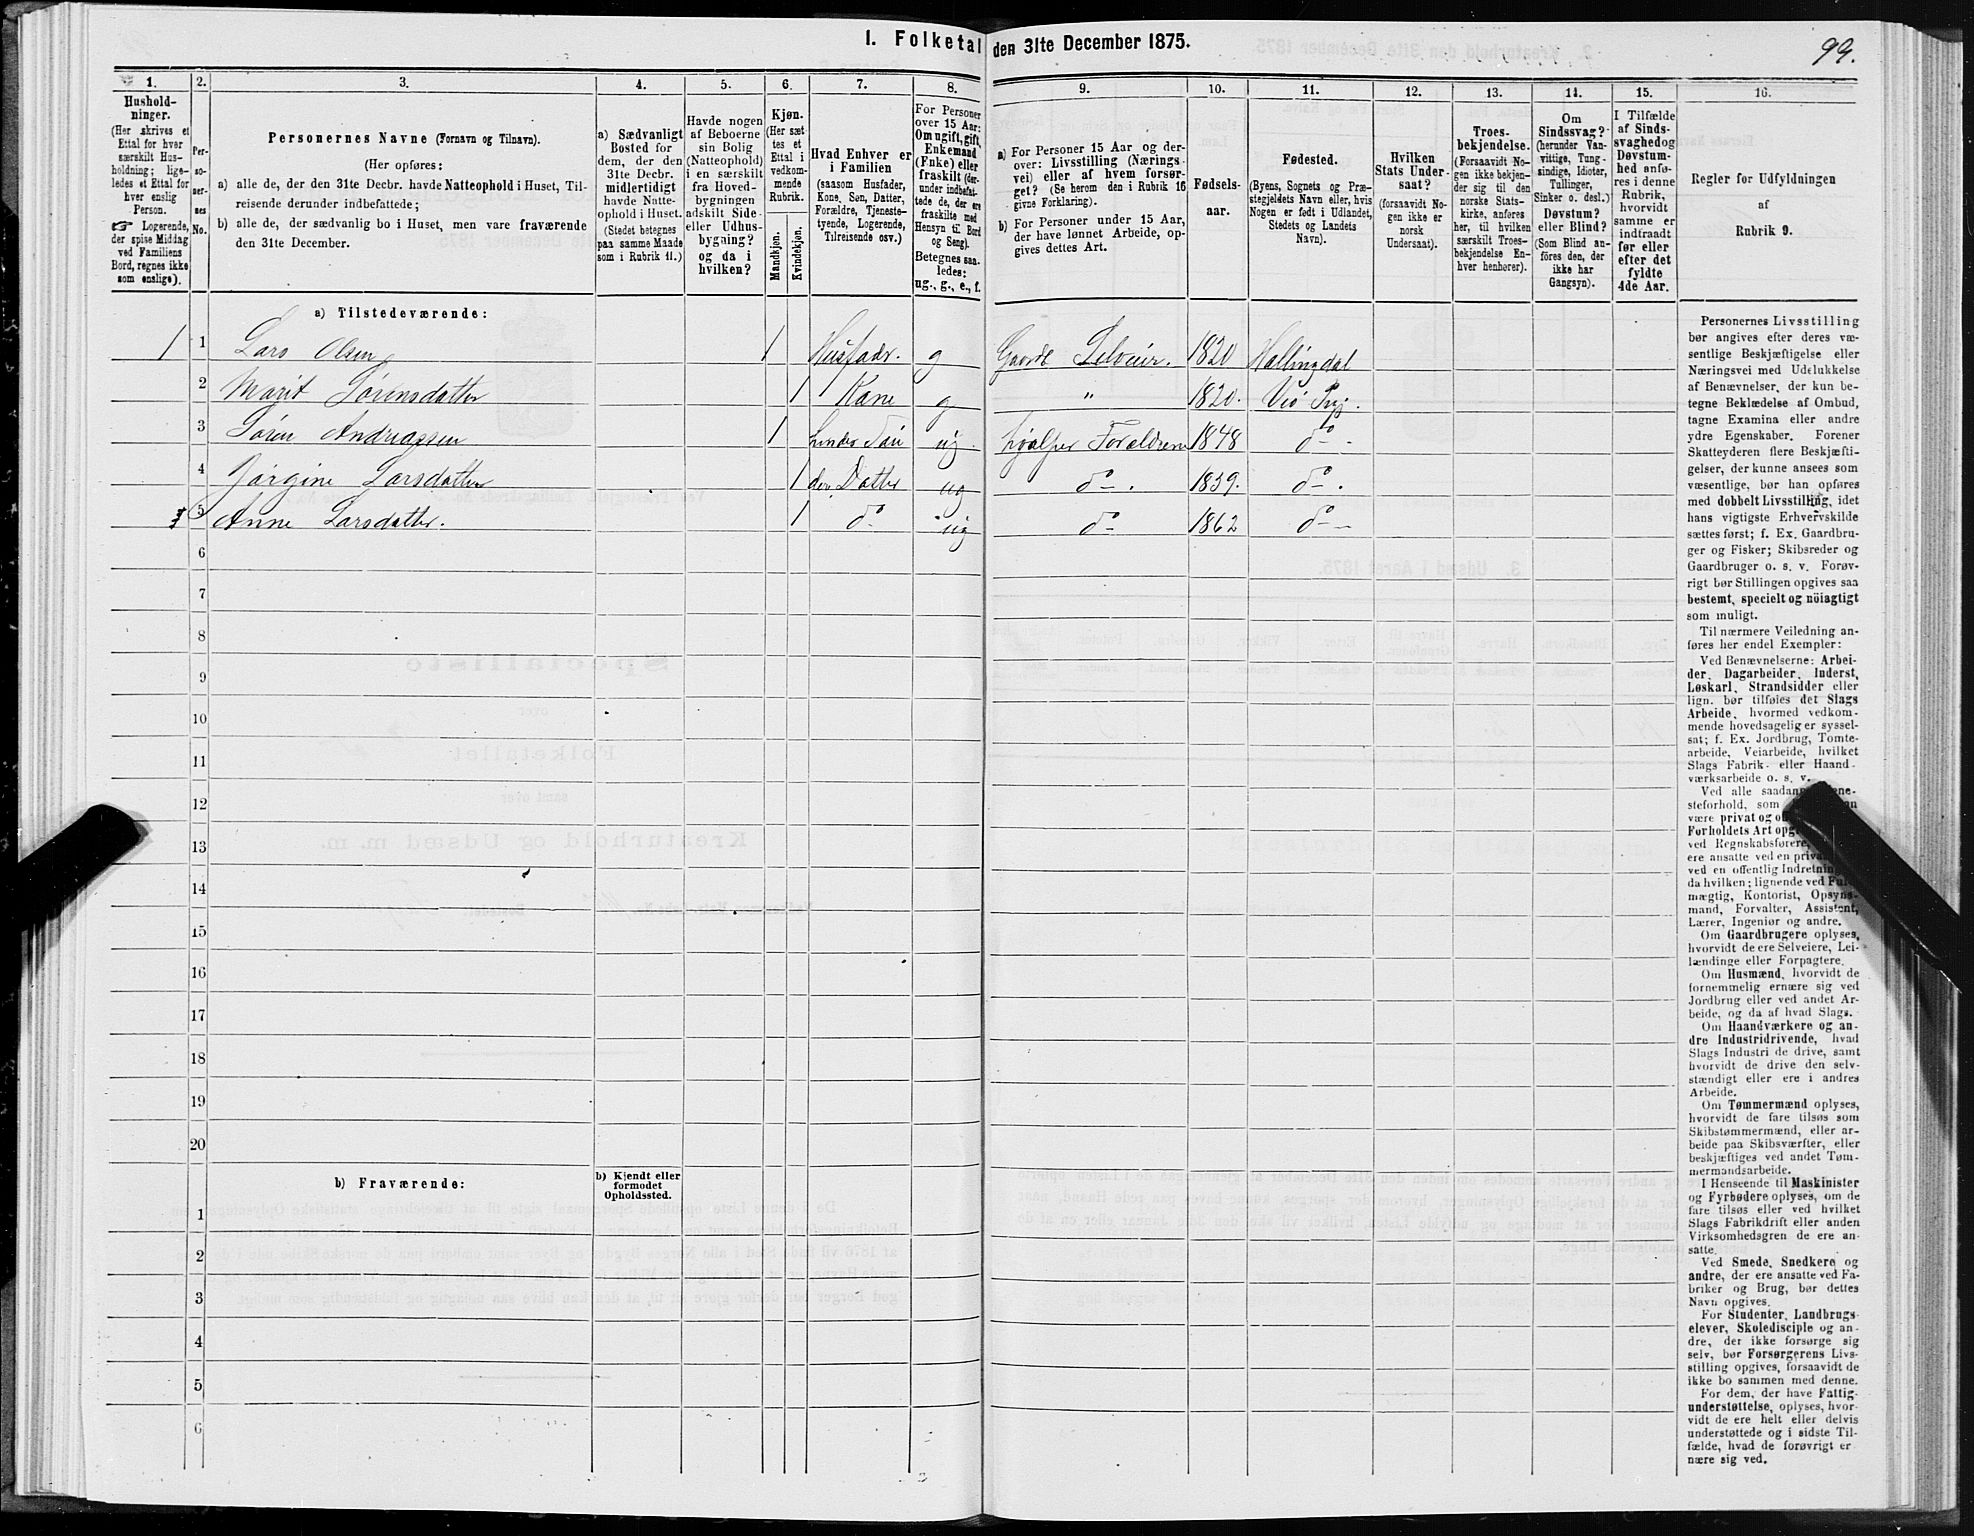 I. Folketal den 31te December 1875.
99.
1.
Hushold-
ninger.
(Her skrives et
Ettal for hver
særskilt Hus-
holdning; lige-
ledes et Ettal for
hver enslig
Person.
☞ Logerende,
der spise Middag
ved Familiens
Bord, regnes ikke
som enslige).
2.
Per-
so-
ner-
nes
No.
3.
Personernes Navne (Fornavn og Tilnavn).
(Her opføres:
a) alle de, der den 31te Decbr. havde Natteophold i Huset, Til-
reisende derunder indbefattede;
b) alle de, der sædvanlig bo i Huset, men vare fraværende
den 31te December.
4.
a) Sædvanligt
Bosted for
dem, der den
31te Decbr.
midlertidigt
havde Natte-
ophold i Huset.
(Stedet betegnes
paa samme Maade
som i Rubrik 11.)
5.
Havde nogen
af Beboerne
sin Bolig
(Natteophold)
i en særskilt
fra Hoved-
bygningen
adskilt Side-
eller Udhus-
bygning?
og da i
hvilken?
6.
Kjøn.
(Her sæt-
tes et
Ettal i
vedkom-
mende
Rubrik.
Mandkjøn.
Kvindekjøn.
7.
Hvad Enhver er
i Familien
(saasom Husfader,
Kone, Søn, Datter,
Forældre, Tjeneste-
tyende, Logerende,
Tilreisende osv.)
8.
For Personer
over 15 Aar:
Om ugift, gift,
Enkemand
(Enke) eller
fraskilt (der-
under indbefat-
tede de, der ere
fraskilte med
Hensyn til Bord
og Seng).
Betegnes saa-
ledes:
ug., g., e., f.
9.
a) For Personer 15 Aar og der-
over: Livsstilling (Nærings-
vei) eller af hvem forsør-
get? (Se herom den i Rubrik 16
givne Forklaring).
b) For Personer under 15 Aar,
der have lønnet Arbeide, op-
gives dettes Art.
10.
Fødsels-
aar.
11.
Fødested.
(Byens, Sognets og Præ-
stegjeldets Navn eller, hvis
Nogen er født i Udlandet,
Stedets og Landets
Navn).
12.
Hvilken
Stats Under-
saat?
(forsaavidt No-
gen ikke er
norsk
Undersaat).
13.
Troes-
bekjendelse.
(Forsaavidt No-
gen ikke bekjen-
der sig til den
norske Stats-
kirke, anføres
her, til hvilken
særskilt Troes-
bekjendelse En-
hver henhører).
14.
Om
Sindssvag?
(herunder Van-
vittige, Tung-
sindige, Idioter,
Tullinger,
Sinker o. desl.)
Døvstum?
eller Blind?
(Som Blind an-
føres den, der
ikke har
Gangsyn).
15.
I Tilfælde
af Sinds-
svaghed og
Døvstum-
hed anfø-
res i denne
Rubrik,
hvorvidt
samme er
indtraadt
før eller
efter det
fyldte
4de Aar.
16.
Regler for Udfyldningen
af
Rubrik 9.
a) Tilstedeværende:
1 1 Lars Olsen 1 Husfadr. g Gaardb Selveier. 1820 Hallingdal
2 Marit Sørensdatter 1 Kone g " 1820.
3 Søren Andreassen 1 Søn ug. hjælper Forældrene 1848 do
4 Jørgine Larsdatter 1 Datter ug do. 1839. do.
5 Anne Larsdatter. 1 do ug do 1862 do
6
7
8
9
10
11
12
13
14
15
16
17
18
19
20
b) Fraværende:
b) Kjendt eller
formodet
Opholdssted.
1
2
3
4
5
6
Personernes Livsstilling
bør angives efter deres væ-
sentlige Beskjæftigelse eller
Næringsvei med Udelukkelse
af Benævnelser, der kun be-
tegne Beklædelse af Ombud,
tagne Examina eller andre
ydre Egenskaber. Forener
Skatteyderen flere Beskjæfti-
gelser, der kunne ansees som
væsentlige, bør han opføres
med dobbelt Livsstilling, idet
hans vigtigste Erhvervskilde
sættes først; f. Ex. Gaardbru-
ger og Fisker; Skibsreder og
Gaardbruger o. s. v. Forøv-
rigt bør Stillingen opgives saa
bestemt, specielt og nøiagtigt
som muligt.
Til nærmere Veiledning an-
føres her endel Exempler:
Ved Benævnelserne: Arbei-
der, Dagarbeider, Inderst,
Løskarl, Strandsidder eller
lign. bør tilføies det Slags
Arbeide, hvormed vedkom-
mende hovedsagelig er syssel-
sat; f. Ex. Jordbrug, Tomte-
arbeide, Veiarbeide, hvilket
Slags Fabrik- eller Haand-
værksarbeide o. s. v.
Ved alle saadan
steforhold, som
være privat og
Forholdets Art
ved Regnskabsførere,
ere ansatte ved en
ved en offentlig Indretning
da hvilken; lignende ved
mægtig, Kontorist, Opsyns-
mand, Forvalter, Assistent,
Lærer, Ingeniør og andre.
Om Gaardbrugere oplyses,
hvorvidt de ere Selveiere, Lei-
lændinge eller Forpagtere.
Om Husmænd, hvorvidt de
fornemmelig ernære sig ved
Jordbrug eller ved andet Ar-
beide, og da af hvad Slags.
Om Haandværkere og an-
dre Industridrivende, hvad
Slags Industri de drive, samt
hvorvidt de drive den selv-
stændigt eller ere i andres
Arbeide.
Om Tømmermænd oplyses,
hvorvidt de fare tilsøs som
Skibstømmermænd, eller ar-
beide paa Skibsværfter, eller
beskjæftiges ved andet Tøm-
mermandsarbeide.
I Henseende til Maskinister
og Fyrbødere oplyses, om de
fare tilsøs eller ved hvilket
Slags Fabrikdrift eller anden
Virksomhedsgren de ere an-
satte.
Ved Smede, Snedkere og
andre, der ere ansatte ved Fa-
briker og Brug, bør dettes
Navn opgives.
For Studenter, Landbrugs-
elever, Skoledisciple og an-
dre, der ikke forsørge sig
selv, bør Forsørgerens Livs-
stilling opgives, forsaavidt de
ikke bo sammen med denne.
For dem, der have Fattig-
understøttelse, oplyses, hvor-
vidt de ere helt eller delvis
understøttede og i sidste Til-
fælde, hvad de forøvrigt er-
nære sig ved.